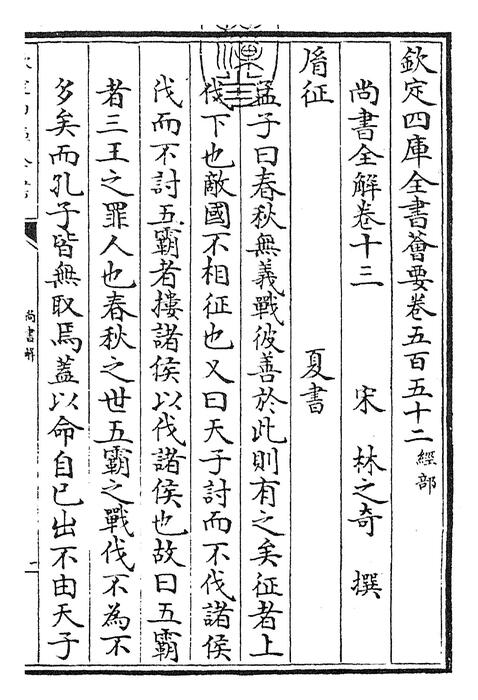 欽定四庫全書薈要卷五百五十二 經部
尚書全解卷十三 宋 林之奇 撰
胤征 夏書
孟子曰春秋無義戰彼善於此則有之矣征者上
伐下也敵國不相征也又曰天子討而不伐諸侯
伐而不討五霸者摟諸侯以伐諸侯也故曰五霸
者三王之罪人也春秋之世五霸之戰伐不為不
多矣而孔子皆無取焉蓋以命自已出不由天子
尚書解